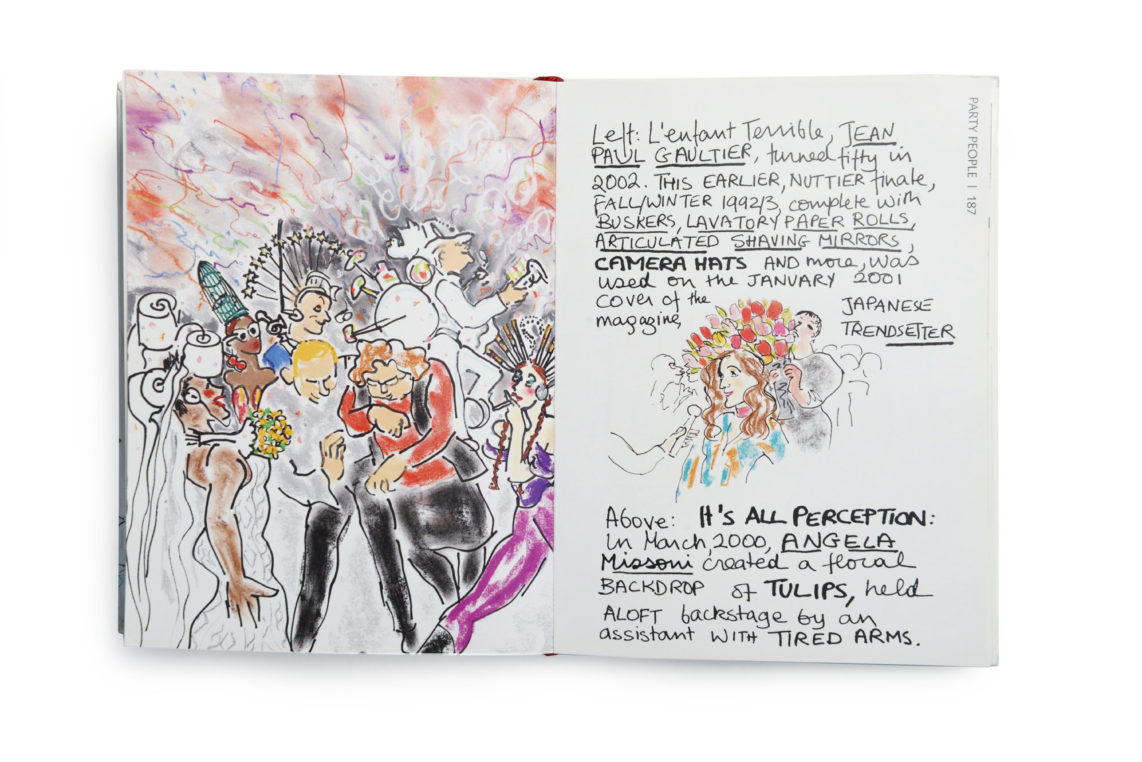 PARTY PEOPLE | 187
Left: L'enfant Terrible, JEAN
PAUL GAULTIER, turned fifty in
2002. THIS EARLIER, NUTTIER finale,
FALL/WINTER 1992/3, complete with
BUSKERS, LAVATORY PAPER ROLLS,
ARTICULATED SHAVING MIRRORS,
CAMERA HATS AND more, was
used on the JANUARY 2001
cover of the JAPANESE
magazine, TRENDSETTER
Above: It's ALL PERCEPTION:
In March, 2000, ANGELA
Missoni created a floral
BACKDROP of TULIPS, held
ALOFT backstage by an
assistant WITH TIRED ARMS.